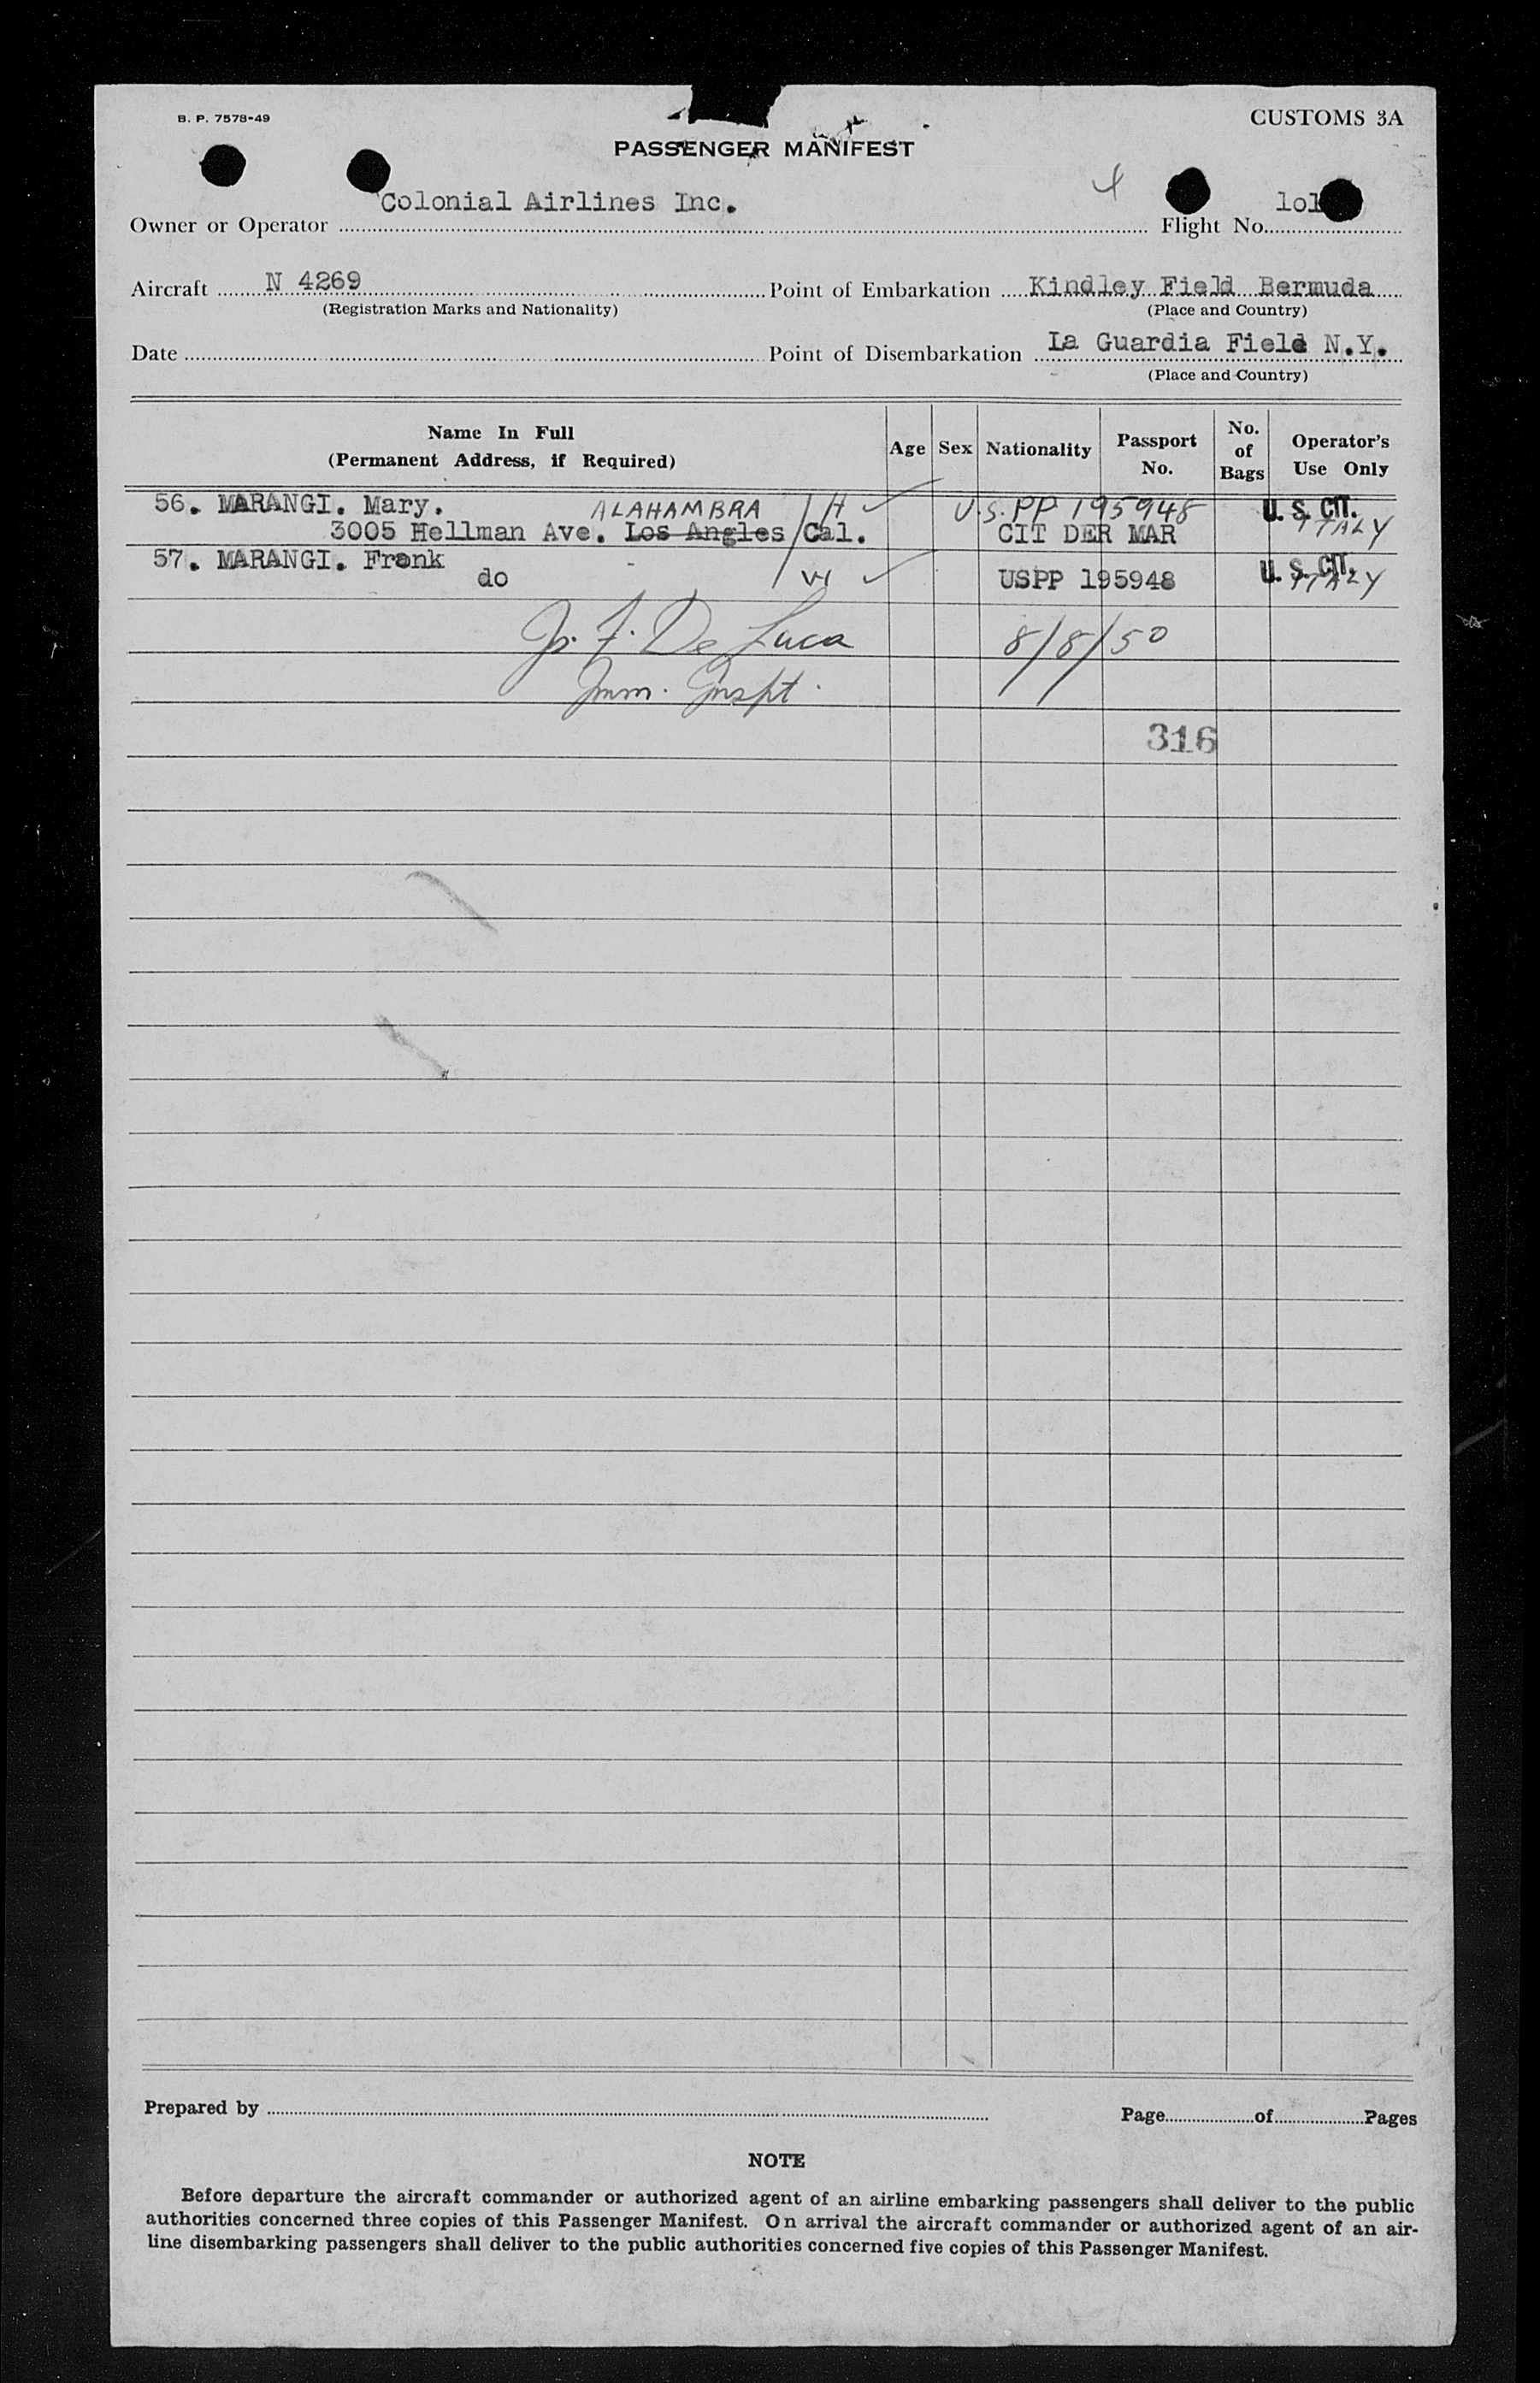 B. P. 7578-49
CUSTOMS 3A
PASSENGER MANIFEST
4
Colonial Airlines Inc.
lol
Owner or Operator
Flight No.
Aircraft N 4269
Point of Embarkation Kindley Field Bermuda
(Registration Marks and Nationality)
(Place and Country)
Date
Point of Disembarkation La Guardia Field N.Y.
(Place and Country)
Name In Full
(Permanent Address, if Required)
Age
Sex
Nationality
Passport
No.
No.
of
Bags
Operator's
Use Only
56. MARANGI. Mary. ALAHAMBRA H U.S. PP 195948 U. S. CIT.
3005 Hellman Ave. Los Angles Cal. CIT DER MAR ITALY
57. MARANGI. Frank U. S. CIT.
do USPP 195948 ITALY
De Luca 8/8/50
Imm. Inspt.
316
Prepared by
Page of Pages
NOTE
Before departure the aircraft commander or authorized agent of an airline embarking passengers shall deliver to the public
authorities concerned three copies of this Passenger Manifest. On arrival the aircraft commander or authorized agent of an air-
line disembarking passengers shall deliver to the public authorities concerned five copies of this Passenger Manifest.